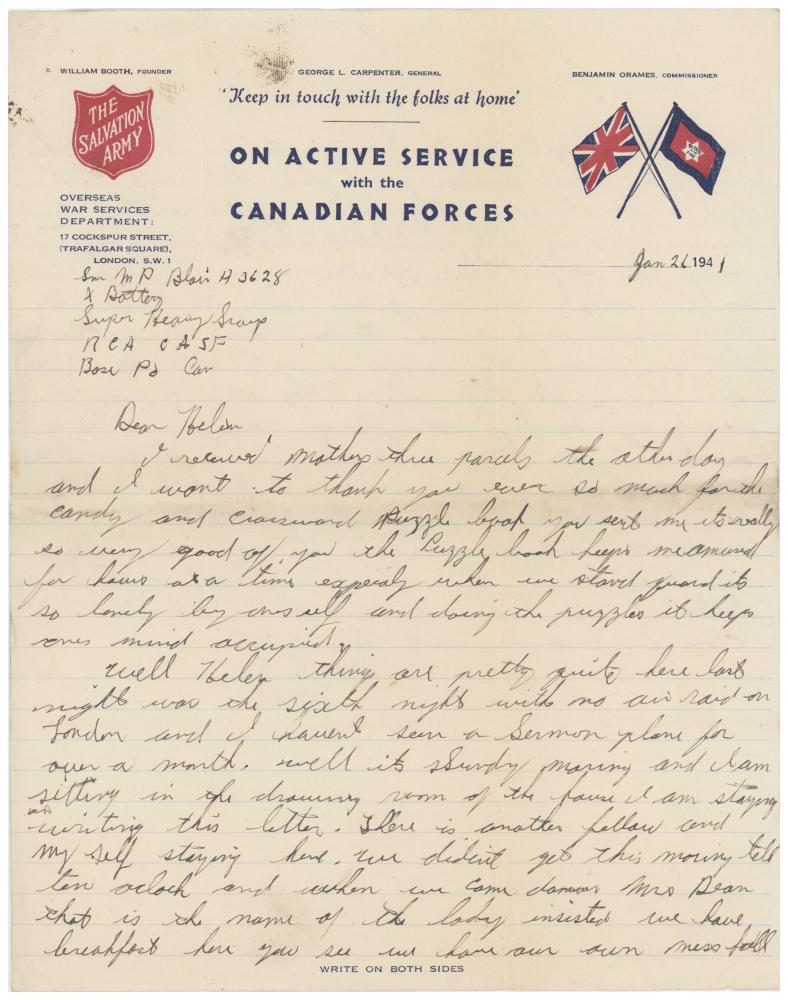 WILLIAM BOOTH, FOUNDER
GEORGE L. CARPENTER, GENERAL
BENJAMIN ORAMES, COMMISSIONER
THE
SALVATION
ARMY
'Keep in touch with the folks at home'
ON ACTIVE SERVICE
with the
CANADIAN FORCES
OVERSEAS
WAR SERVICES
DEPARTMENT:
17 COCKSPUR STREET,
(TRAFALGAR SQUARE),
LONDON, S.W. 1
Jan 26 1941
Gnr M P Blair H 3628
X Battery
Super Heavy Group
R C A C A S F
Base P.O Can
Dear Helen
I received Mothers three parcels the other day
and I want to thank you ever so much for the
candy and crossword Puzzle book you sent me its really
so very good of you the Puzzle book keeps me amused
for hours at a time especaly when we stand guard its
so lonely by ones self and doing the puzzles it keeps
ones mind occupied.
Well Helen things are pretty quite here last
night was the sixth night with no air raid on
London and I havent seen a German plane for
over a month. well its Sunday moring and I am
sitting in the drawing room of the house I am staying
in writing this letter. There is another fellow and
my self staying here. we didint get this moring till
ten oclock and when we came down Mrs Dean
that is the name of the lady insisted we have
breakfast here you see we have our own mess hall
WRITE ON BOTH SIDES